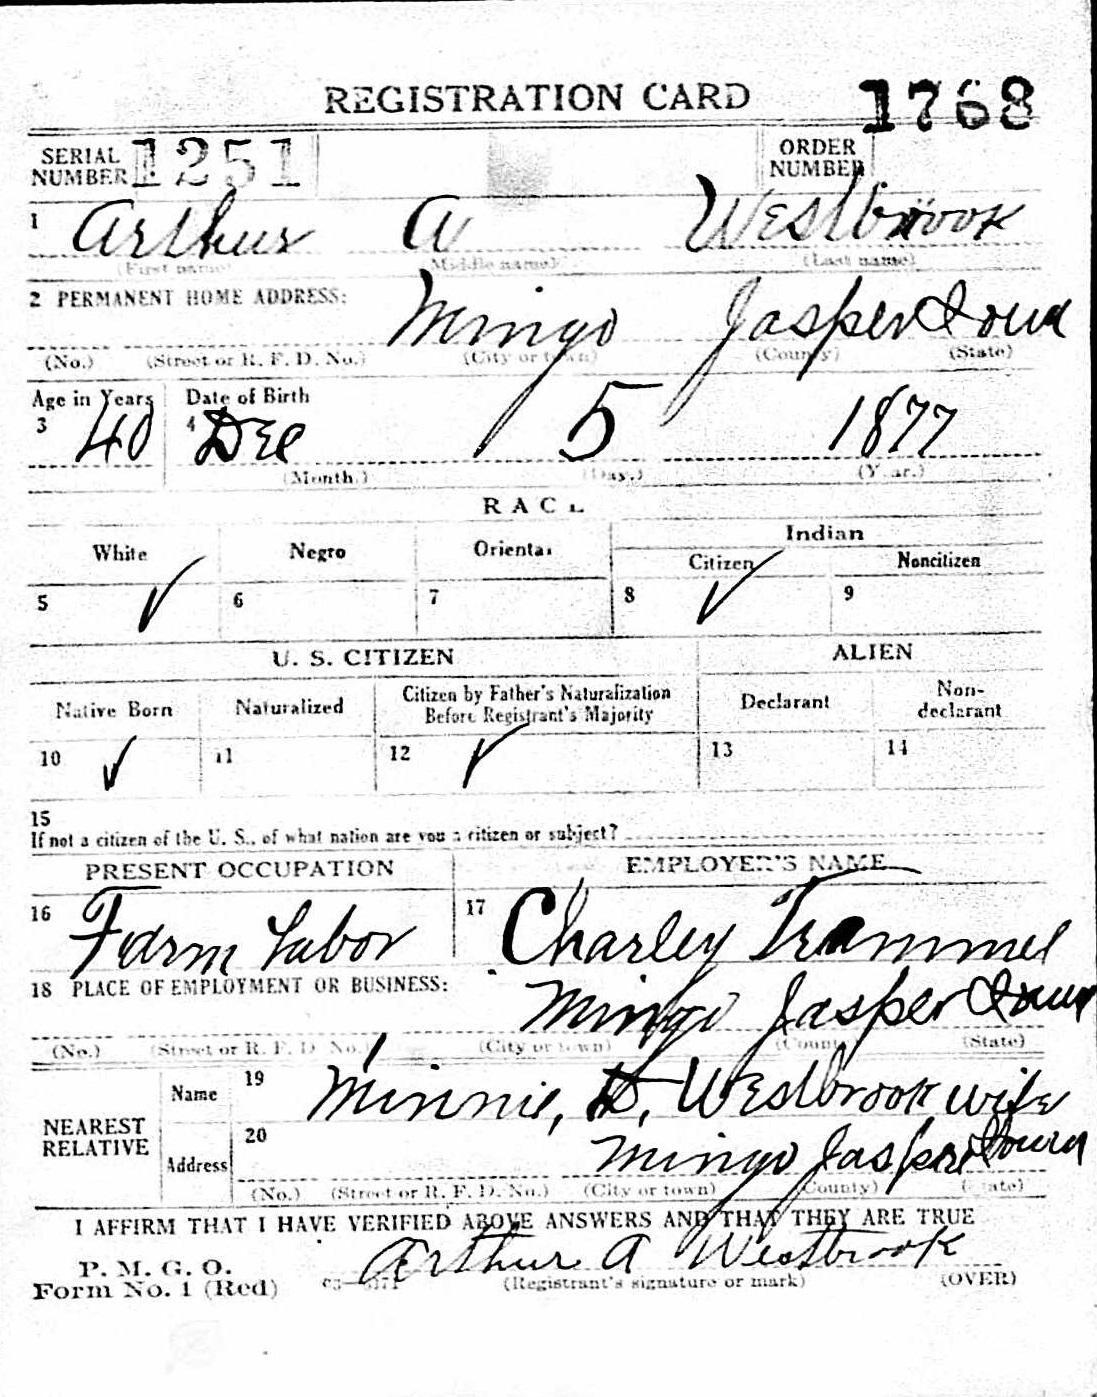 REGISTRATION CARD 1768
SERIAL NUMBER 1251 ORDER NUMBER
1 Arthur A Westbrook
(First name) (Middle name) (Last name)
2 PERMANENT HOME ADDRESS:
Mingo Jasper Iowa
(No.) (Street or R. F. D. No.) (City or town) (County) (State)
Age in Years Date of Birth
3 40 4 Dec 5 1877
(Month.) (Day.) (Year.)
RACE
White Negro Oriental Indian
Citizen Noncitizen
5 ✓ 6 7 8 ✓ 9
U. S. CITIZEN ALIEN
Native Born Naturalized Citizen by Father's Naturalization Before Registrant's Majority Declarant Non-declarant
10 ✓ 11 12 ✓ 13 14
15
If not a citizen of the U. S., of what nation are you a citizen or subject?
PRESENT OCCUPATION EMPLOYER'S NAME
16 Farm Labor 17 Charley Trammel
18 PLACE OF EMPLOYMENT OR BUSINESS:
Mingo Jasper Iowa
(No.) (Street or R. F. D. No.) (City or town) (County) (State)
NEAREST RELATIVE
Name 19 Minnie, D, Westbrook wife
Address 20 Mingo Jasper Iowa
(No.) (Street or R. F. D. No.) (City or town) (County) (State)
I AFFIRM THAT I HAVE VERIFIED ABOVE ANSWERS AND THAT THEY ARE TRUE
P. M. G. O. Arthur A Westbrook
Form No. 1 (Red) (Registrant's signature or mark) (OVER)